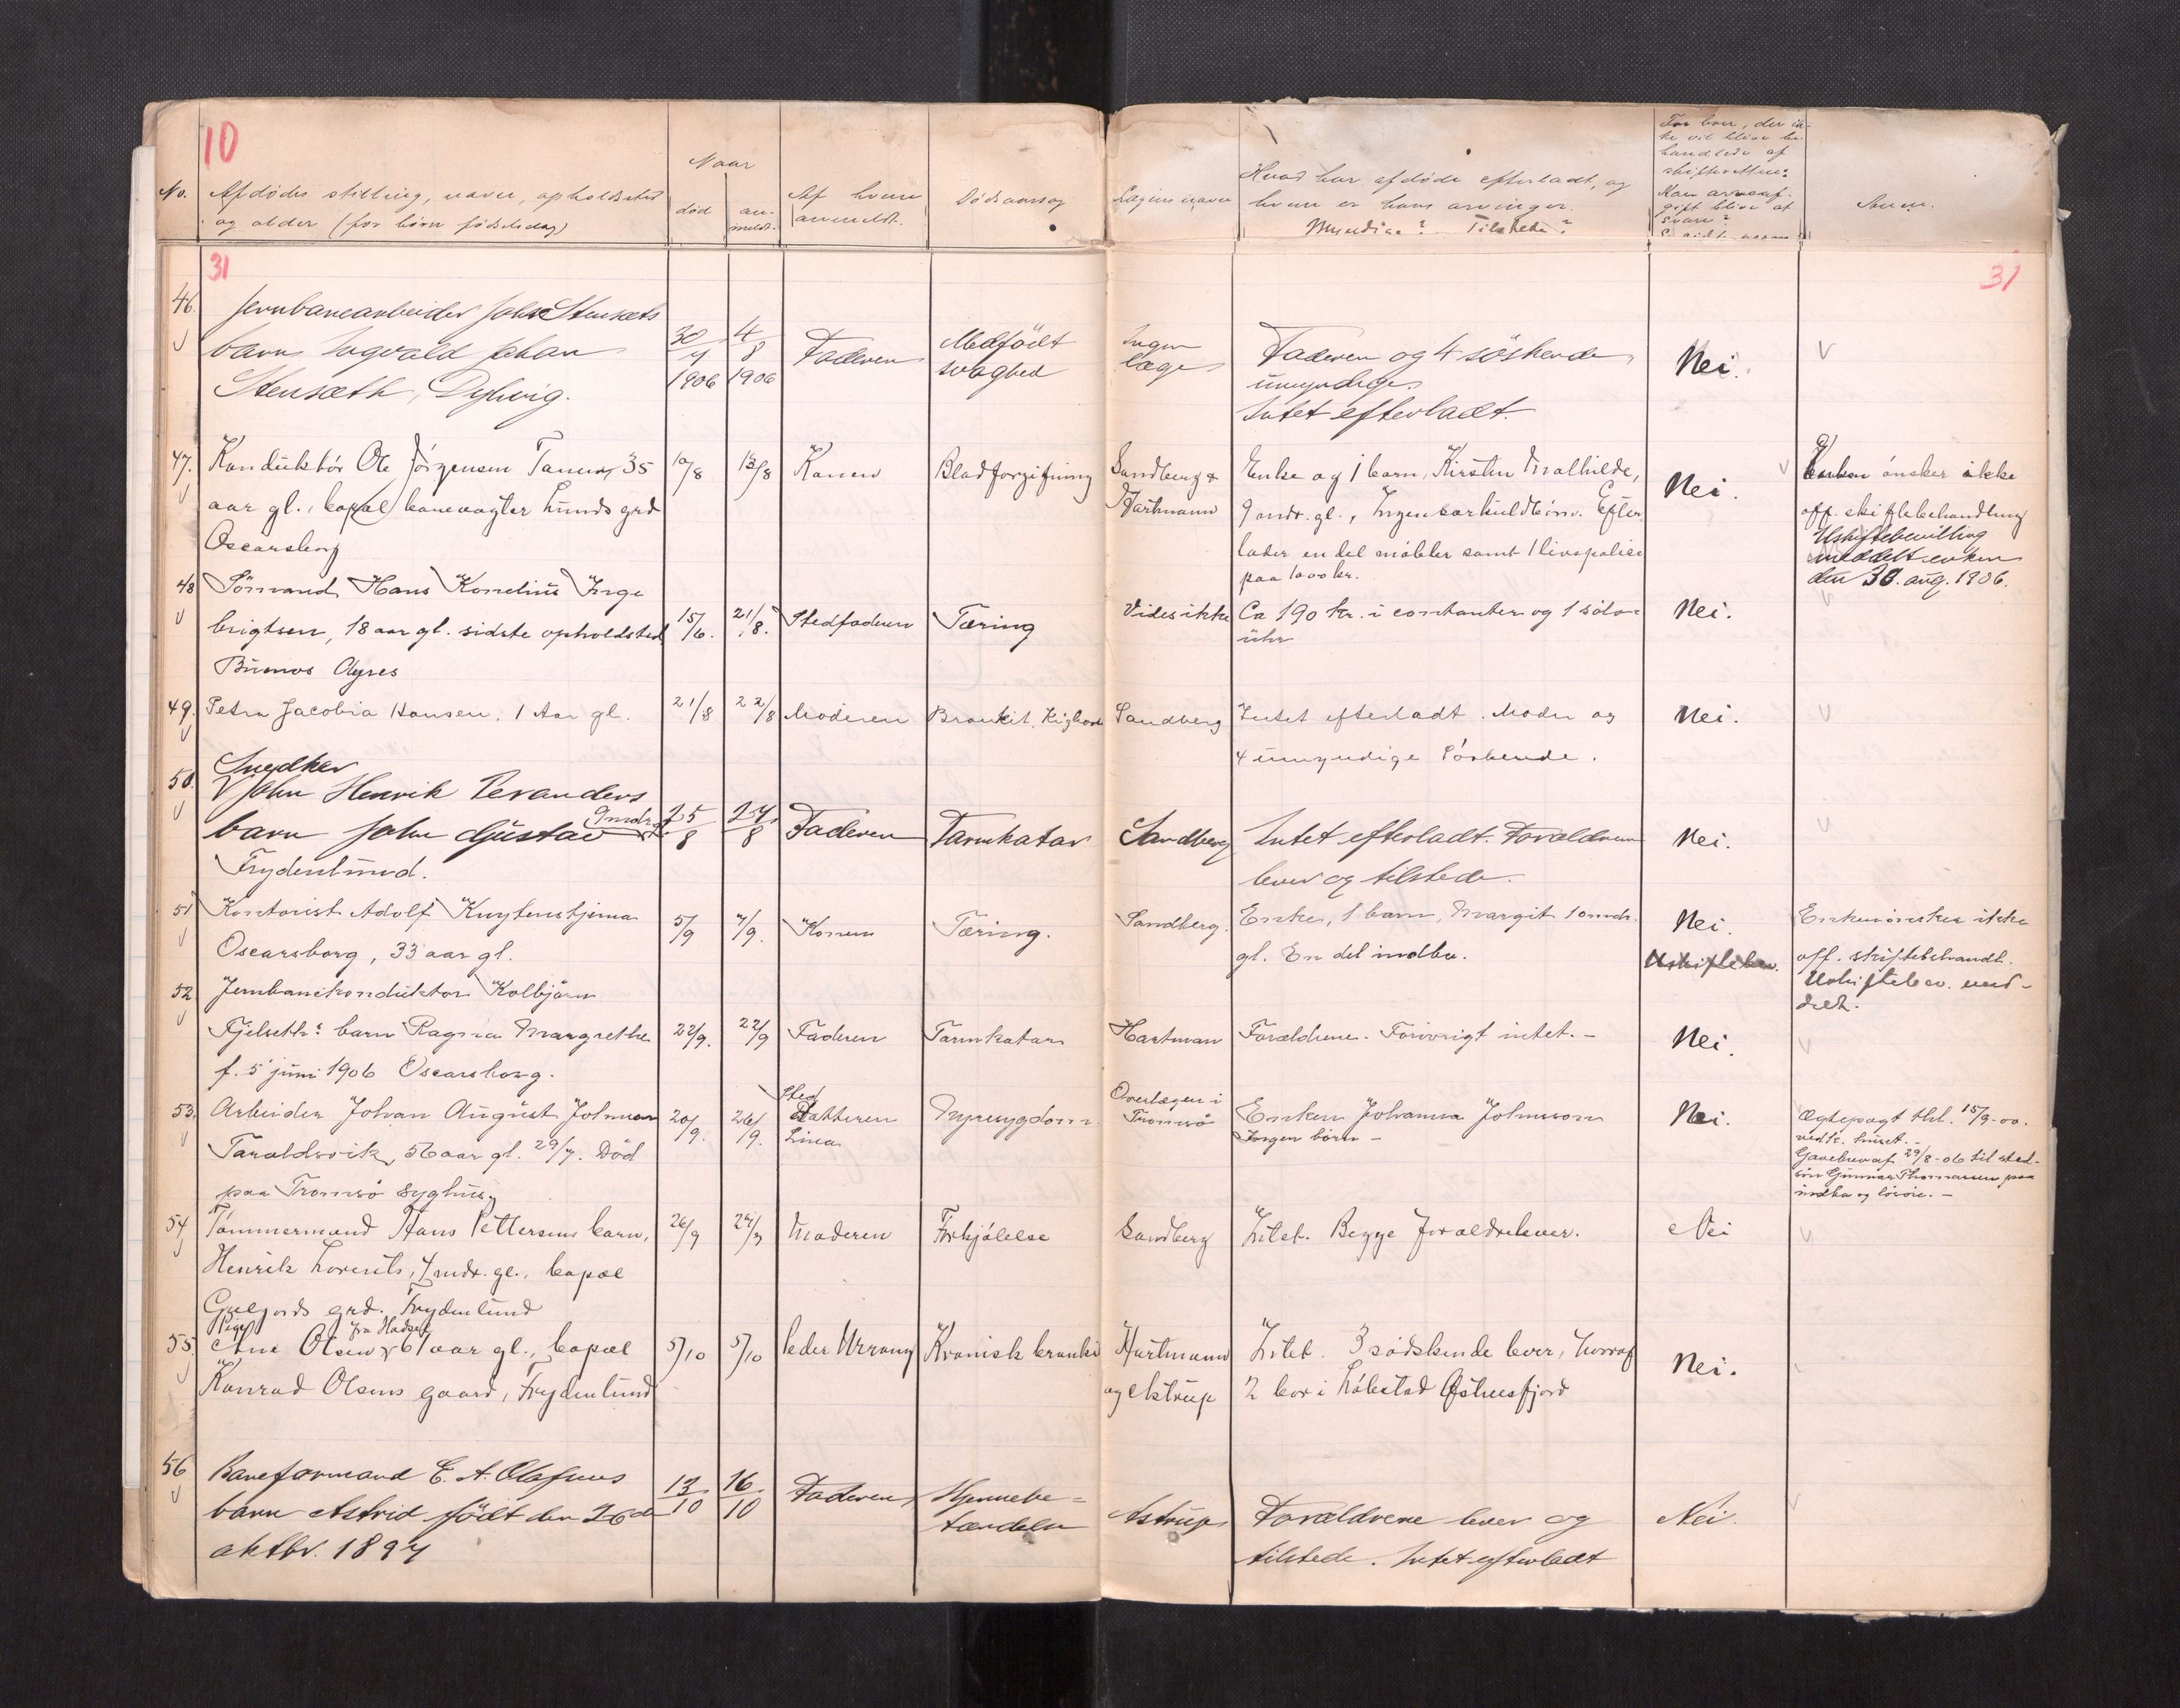 10
No.
Afdødes stilling, navn, opholdssted
og alder (for børn fødselsdag)
Naar
død
an-
meldt.
Af hvem
anmeldt.
Dødsaarsag
Lægens navn
Hvad har afdøde efterladt, og
hvem er hans arvinger.
Myndige? Tilstede?
For boer, der ik-
ke vil blive be-
handlede af
skifteretten:
Kan arveaf-
gift blive at
svare?
Anm.
31
31
46.
Jernbanearbeider Johs Stensæts
barn Ingvald Johan
Stensæth, Dybvig.
30/7 1906
4/8 1906
Faderen
Medfödt
svaghed
Ingen
læge
Faderen og 4 söskende,
umyndige.
Intet efterladt.
Nei.
47.
Konduktör Ole Jörgensen Tanem, 35
aar gl., bopæl banevogter Lunds grd
Oscarsborg
10/8
13/8
Konen
Blodforgiftning
Sandberg &
Hartmann
Enke og 1 barn, Kirsten Mathilde,
9 mdr. gl., Ingen særkuldbörn. Efter
lader en del möbler samt 1 livspolice
paa 1000 kr.
Nei.
Enken önsker ikke
off. skiftebehandling
Uskiftebevilling
meddelt enken
den 30. aug. 1906.
48
Sömand Hans Kornelius Inge
brigtsen, 18 aar gl. sidste opholdsted
Buenos Ayres
15/6.
21/8.
Stedfaderen
Tæring
Vides ikke
Ca 190 kr. i contanter og 1 sölv-
uhr
Nei.
49.
Petra Jacobia Hansen, 1 Aar gl.
21/8
22/8
Moderen
Bronkit, Kighoste
Sandberg
Intet efterladt. Moder og
4 umyndige Söskende.
Nei.
50.
Snedker
John Henrik Tevanders
barn John Gustav 9 mdr gl
Frydenlund.
25/8
27/8
Faderen
Tarmkatar
Sandberg
Intet efterladt. Forældrene
lever og tilstede.
Nei.
51
Kontorist Adolf Knytenstjerna
Oscarsborg, 33 aar gl.
5/9
7/9.
Konen
Tæring.
Sandberg.
Enke, 1 barn, Margit 10 mdr.
gl. En del indbo.
Nei.
Uskiftebev.
Enken önsker ikke
off. skiftebehandl.
Uskiftebev. med-
delt.
52
Jernbanekonduktör Kolbjörn
Fjelseth's barn Ragna Margrethe
f. 5 juni 1906 Oscarsborg.
22/9.
22/9
Faderen
Tarmkatar
Hartman
Forældrene. Forövrigt intet. -
Nei.
53.
Arbeider Johan August Johnson
Taraldsvik, 56 aar gl. 29/7. Död
paa Tromsö sygehus.
20/9.
26/9.
Sted
Datteren
Lina
Nyresygdom
Overlægen i
Tromsö
Enken Johanna Johnsson
Ingen börn -
Nei.
Ægtepagt thl. 15/9-00.
vedk. huset. -
Gavebrev af 29/8-06 til sted-
sön Gunnar Thomassen paa
indbo og lösöre. -
54
Tömmermand Hans Pettersens barn,
Henrik Lorents, 7 mdr. gl., bopæl
Grd. Frydenlund
26/9
27/9
Moderen
Forkjölelse
Sandberg
Intet. Begge forældre lever.
Nei
55.
Pige fra Hadsel
Ane Olsen 61 aar gl., bopæl
Konrad Olsens gaard, Frydenlund
5/10
5/10
Peder
Kronisk bronki
Hartmann
og Astrup
Intet. 3 södskende lever, hvoraf
2 bor i Löbstad
Nei.
56
Baneformand E. A. Olafsens
barn Astrid födt den 26de
oktbr. 1897
13/10
16/10
Faderen
Hjernebe-
tændelse
Astrup
Forældrene lever og
tilstede. Intet efterladt
Nei.